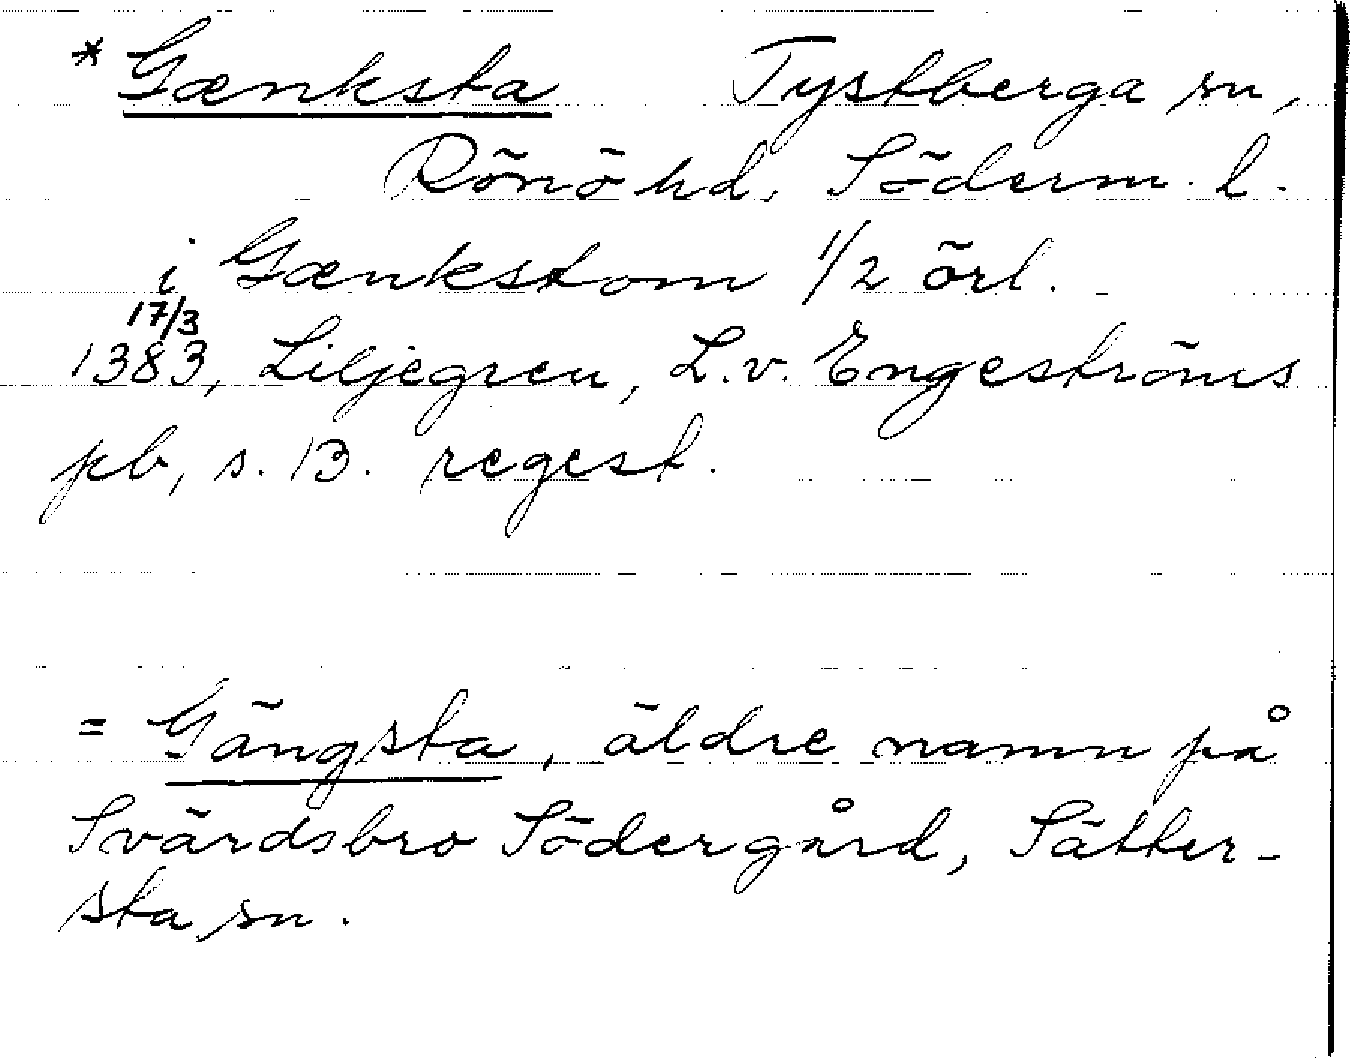 * Gænksta Tystberga sn,
Rönö hd, Söderm. l.
i Gænkstom 1/2 örl.
17/3
1383, Liljegren, L.v. Engeströms
pb, s. 13. regest.
= Gängsta, äldre namn på
Svärdsbro Södergård, Sätter-
sta sn.